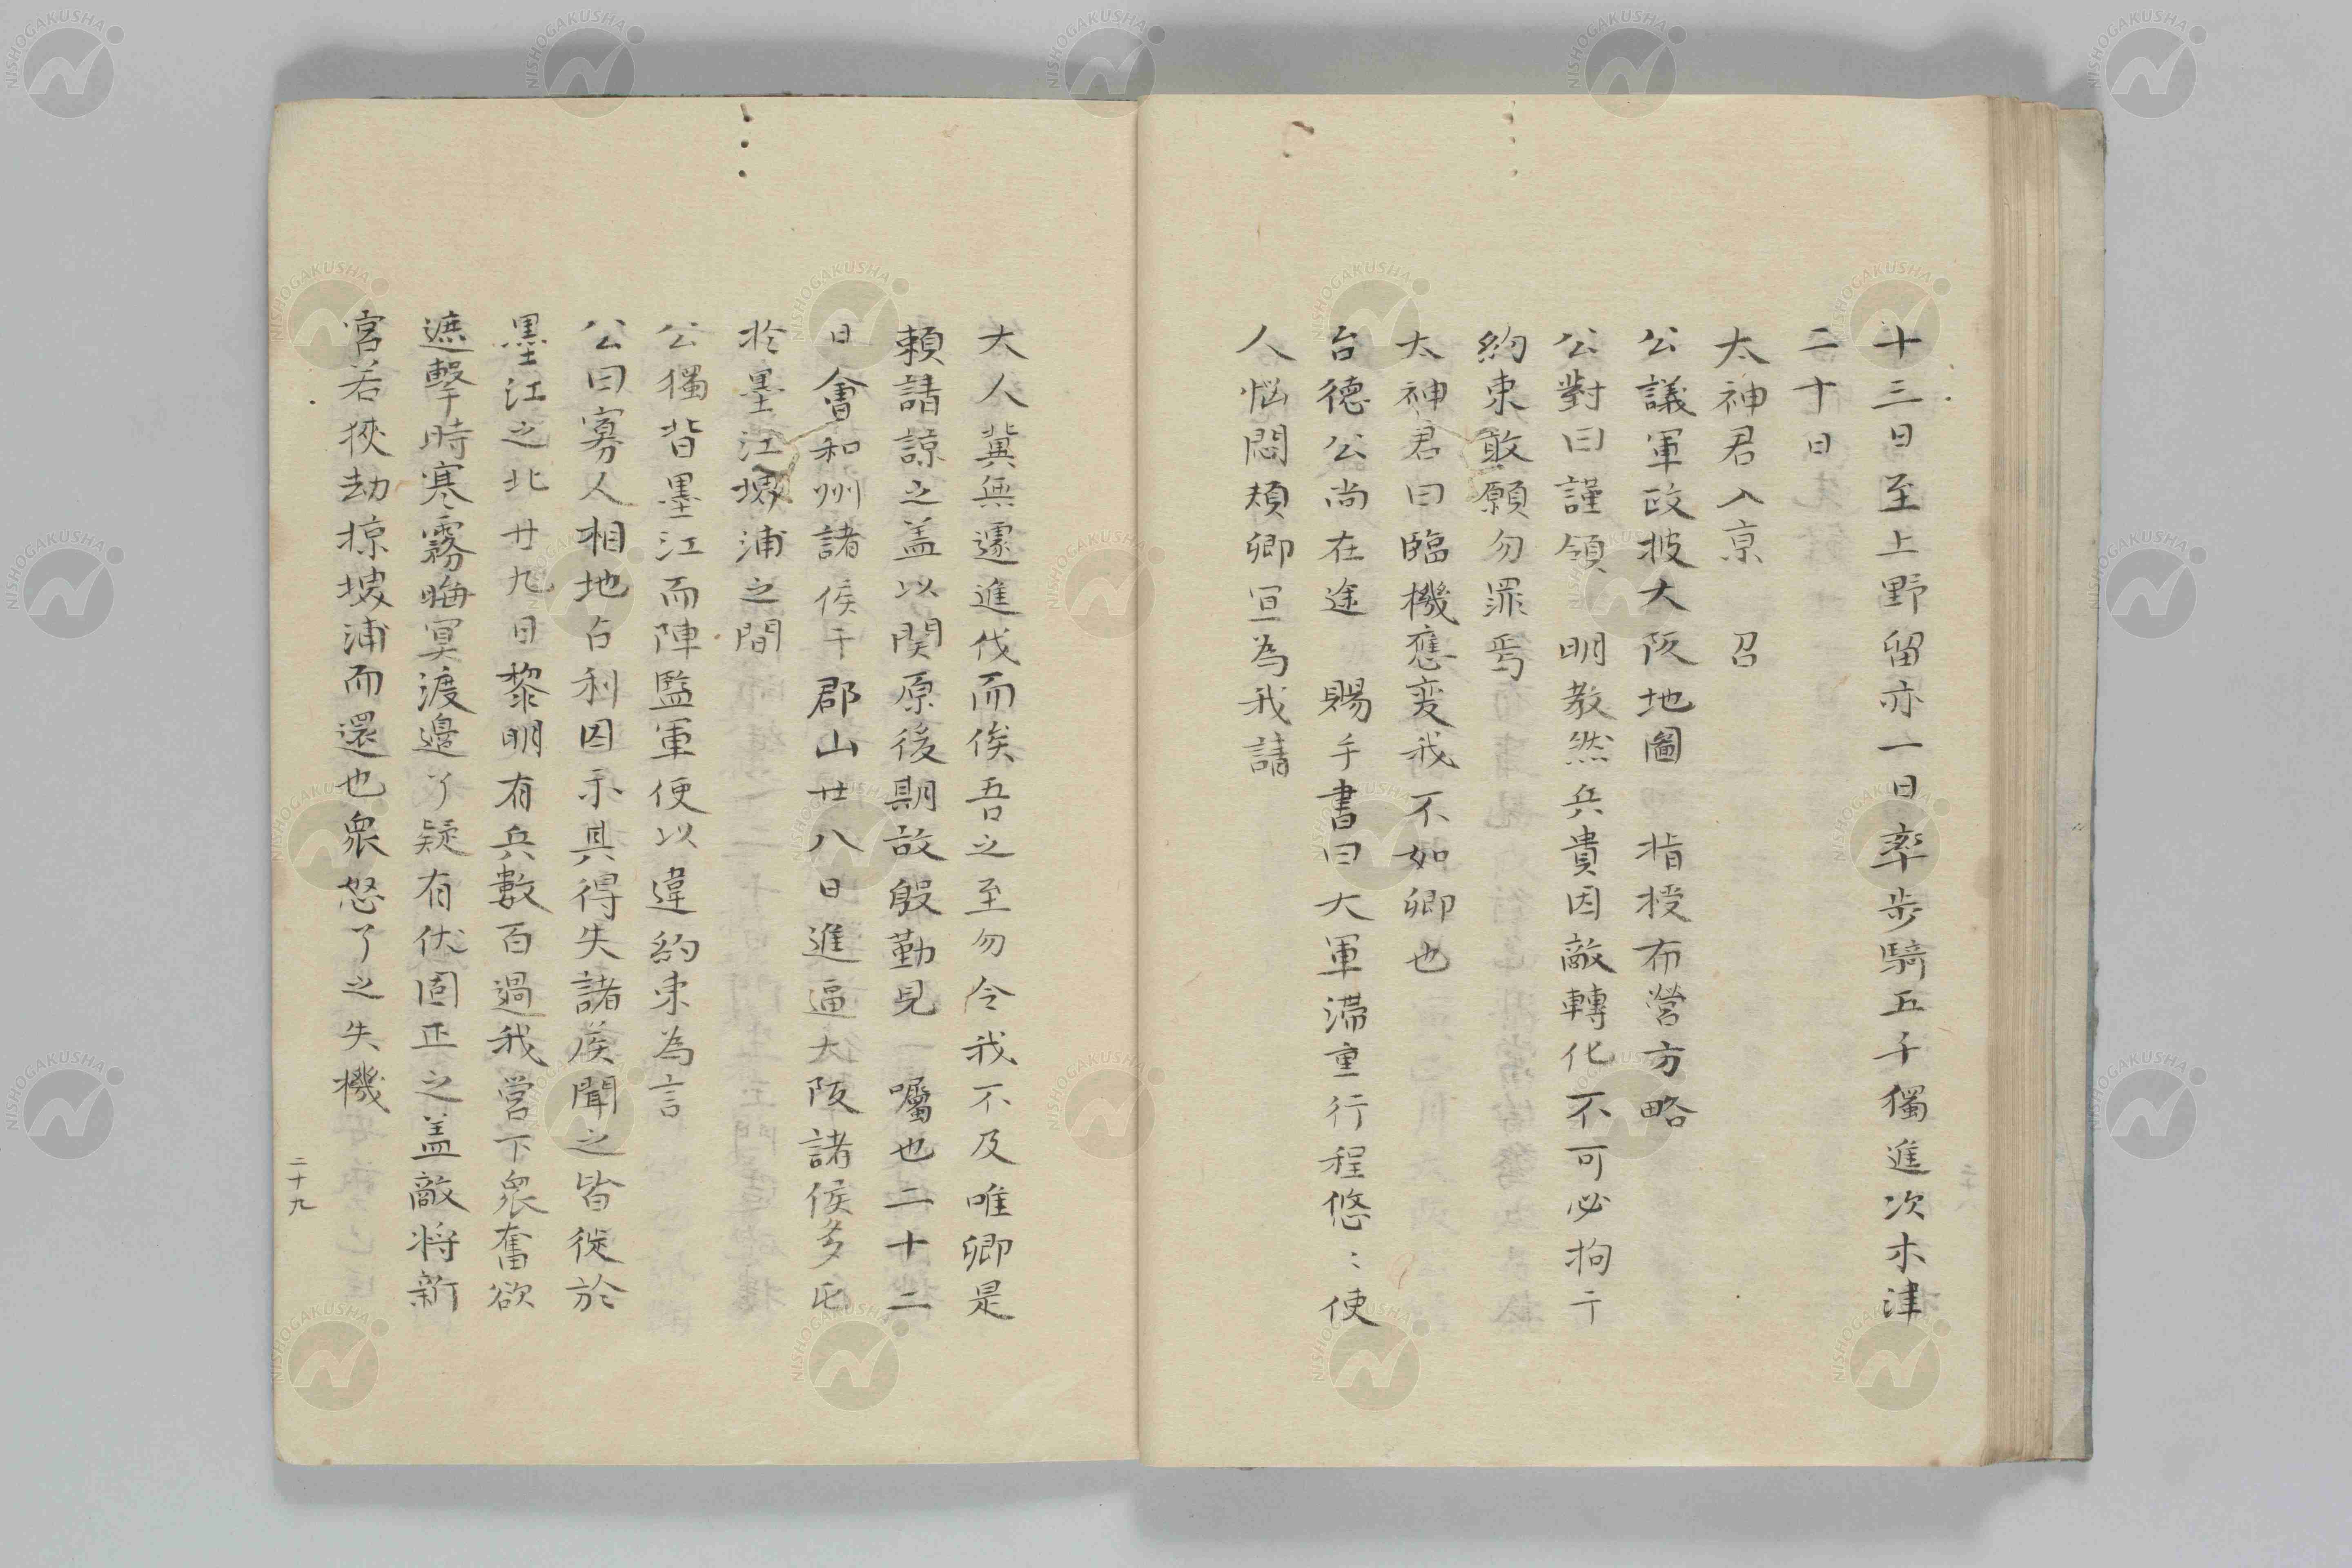 十三日至上野留亦一日率歩騎五千獨進次木津
二十日
太神君入京　召
公議軍政披大阪地圖　指授布營方略
公對曰謹領　明教然兵貴因敵轉化不可必拘于
約束敢願勿罪焉
太神君曰臨機應変我不如卿也
台德公尚在途　賜手書曰大軍滯重行程悠〻使
人悩悶煩卿宜為我請
大人冀無遽進伐而俟吾之至勿令我不及唯卿是
頼請諒之盖以関原後期故殷勤見　囑也二十二
日會和州諸侯于郡山廿八日進逼大阪諸侯多屯
於墨江堺浦之間
公獨背墨江而陣監軍便以違約束為言
公曰寡人相地占利因示具得失諸侯聞之皆徙於
墨江之北廿九日黎明有兵數百過我営下衆奮欲
遮擊時寒霧晦冥渡邊了疑有伏固正之盖敵将新
宮若狹劫掠堺浦而還也衆怒了之失機
二十九
NISHOGAKUSHA